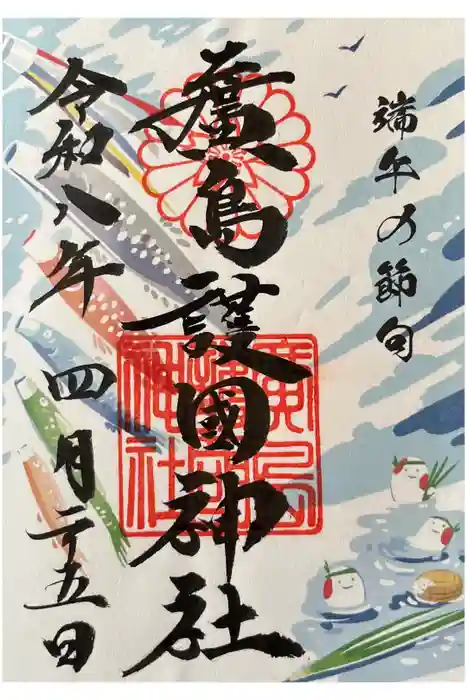 端午の節句
廣島護國神社
廣島護國神社
令和八年四月二十五日